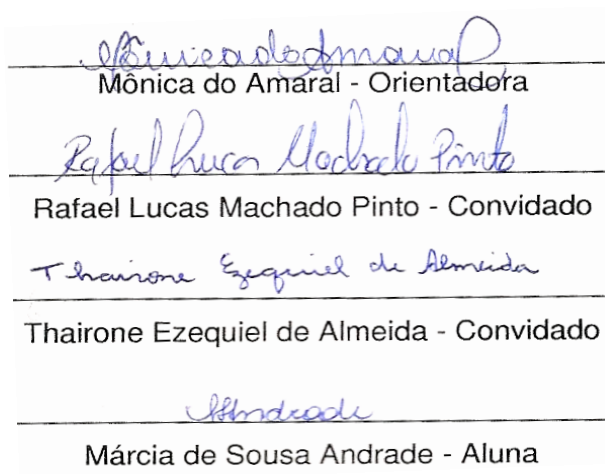 Mônica do Amaral
Mônica do Amaral - Orientadora
Rafael Lucas Machado Pinto
Rafael Lucas Machado Pinto - Convidado
Thairone Ezequiel de Almeida
Thairone Ezequiel de Almeida - Convidado
MAndrade
Márcia de Sousa Andrade - Aluna